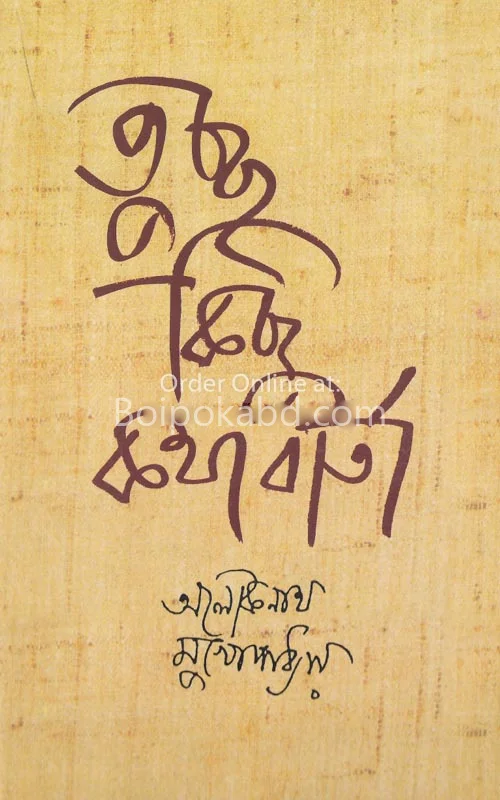 তুচ্ছ
কিছু
কথাবার্তা
Order Online at:
Boipokabd.com
মুখোপাধ্যায়